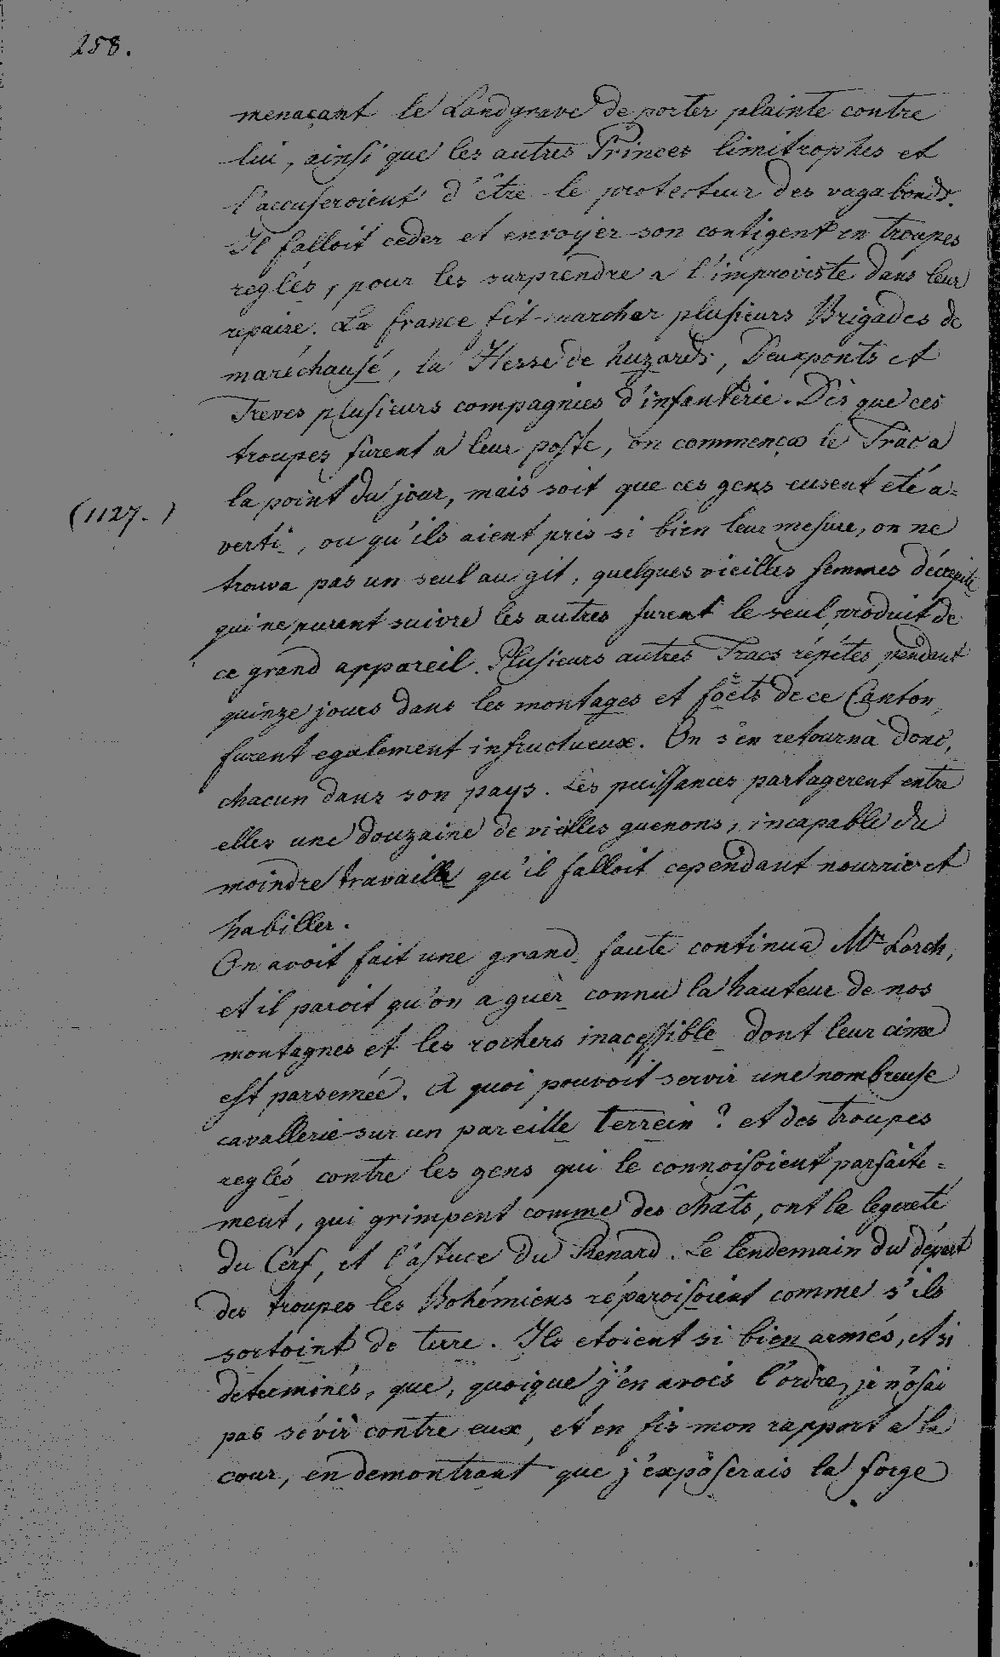 258.
menaçant le Landgrave de porter plainte contre
lui, ainsi que les autres Princes limitrophes et
l'accuseroient d'être le protecteur des vagabonds.
Il falloit ceder et envoyer son contigent en troupes
reglés, pour les surprendre a l'improviste dans leur
repaire. La france fit marcher plusieurs Brigades de
maréchausé, la Hesse de huzards, Deuxponts et
Treves plusieurs compagnies d'infanterie. Dès que ces
troupes furent a leur poste, on commença le Trac a
la point du jour, mais soit que ces gens eusent eté a=
(1127.)
verti, ou qu'ils aient pris si bien leur mesure, on ne
trouva pas un seul au git, quelques vieilles femmes décrepite
qui ne purent suivre les autres furent le seul produit de
ce grand appareil. Plusieurs autres Tracs répétés pendant
quinze jours dans les montages et foêts de ce Canton,
furent egalement infructueux. On s'en retourna donc,
chacun dans son pays. Les puissances partagerent entre
elles une douzaine de vieilles guenons, incapable du
moindre travaille qu'il falloit cependant nourrir et
habiller.
On avoit fait une grand faute continua Mr Lorch,
et il paroit qu'on a guèr connu la hauteur de nos
montagnes et les rochers inacessible dont leur cime
est parsemée. A quoi pouvoit servir une nombreuse
cavallerie sur un pareille terrein? et des troupes
reglés contre les gens qui le connoisoient parfaite=
ment, qui grimpent comme des chats, ont la legereté
du Cerf, et l'astuce du Renard. Le lendemain du départ
des troupes les Bohémiens réparoisoient comme s'ils
sortoint de terre. Ils etoient si bien armés, et si
determinés, que, quoique j'en avois l'ordre, je n'osai
pas sévir contre eux, et en fis mon rapport a la
cour, en demontrant que j'exposerais la forge